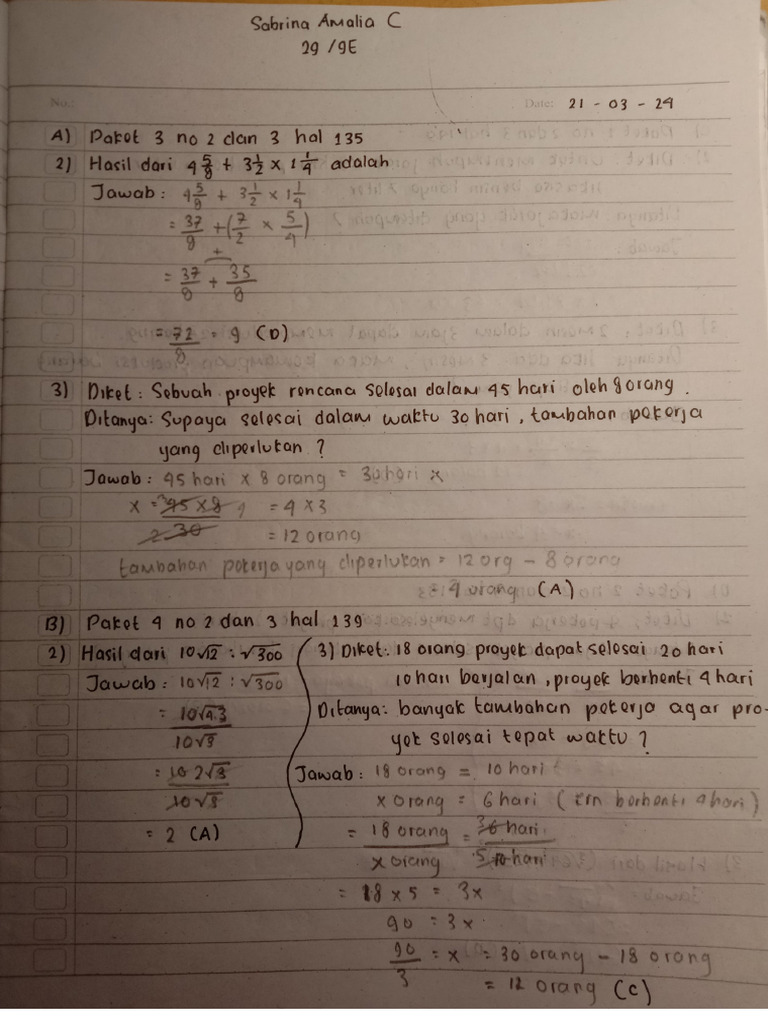 Sabrina Amalia C
29 /9E
No.:
Date: 21 - 03 - 24
A) Paket 3 no 2 dan 3 hal 135
2) Hasil dari 4 5/8 + 3 1/2 × 1 1/4 adalah
Jawab : 4 5/8 + 3 1/2 × 1 1/4
= 37/8 + (7/2 × 5/4)
= 37/8 + 35/8
= 72/8 = 9 (D)
3) Diket : Sebuah proyek rencana selesai dalam 45 hari oleh 8 orang.
Ditanya : Supaya selesai dalam waktu 30 hari, tambahan pekerja
yang diperlukan ?
Jawab : 45 hari × 8 orang = 30 hari x
x = 45 × 8 / 30 = 4 × 3
= 12 orang
tambahan pekerja yang diperlukan = 12 org - 8 orang
= 4 orang (A)
B) Paket 4 no 2 dan 3 hal 139
2) Hasil dari 10√12 : √300
Jawab : 10√12 : √300
= 10√4.3 / 10√3
= 10 2√3 / 10√3
= 2 (A)
3) Diket : 18 orang proyek dapat selesai 20 hari
10 hari berjalan, proyek berhenti 4 hari
Ditanya : banyak tambahan pekerja agar pro-
yek selesai tepat waktu ?
Jawab : 18 orang = 10 hari
x orang = 6 hari (krn berhenti 4 hari)
= 18 orang / x orang = 3 6 hari / 5 10 hari
= 18 × 5 = 3x
90 = 3x
90/3 = x = 30 orang - 18 orang
= 12 orang (C)